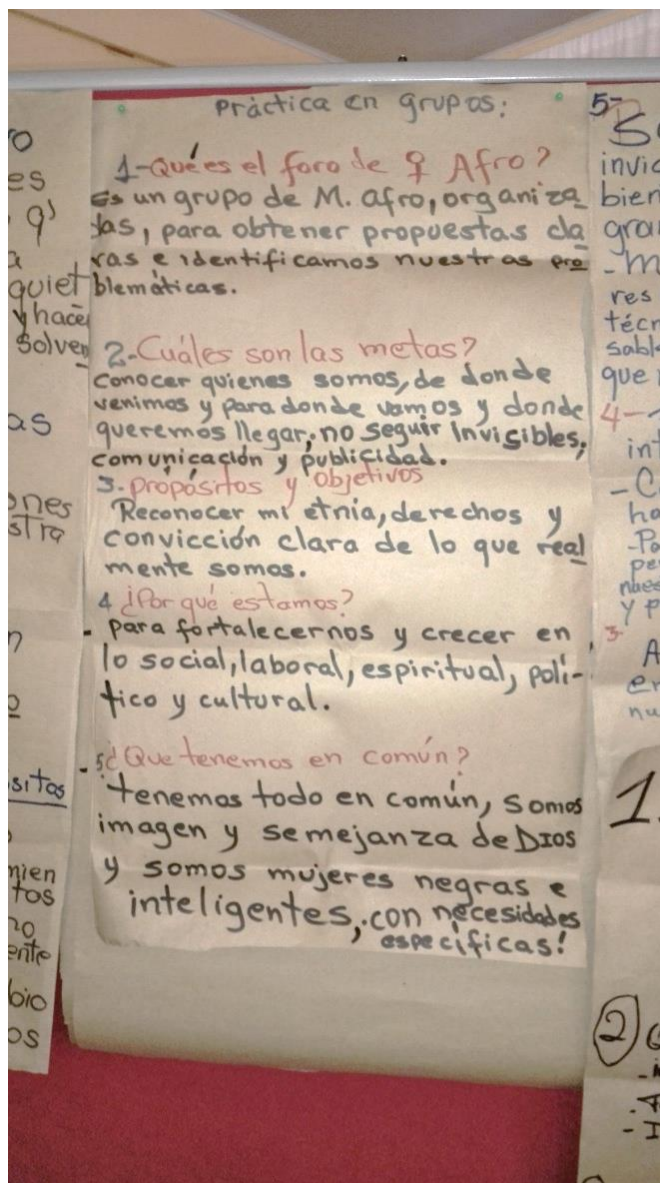 práctica en grupos:
1-Qué es el foro de ♀ Afro?
es un grupo de M. afro, organiza
das, para obtener propuestas cla
ras e identificamos nuestras pro
blemáticas.
2-Cuáles son las metas?
conocer quienes somos, de donde
venimos y para donde vamos y donde
queremos llegar, no seguir invisibles,
comunicación y publicidad.
3. propósitos y objetivos
Reconocer mi etnia, derechos y
convicción clara de lo que real
mente somos.
4 ¿Por qué estamos?
- para fortalecernos y crecer en
lo social, laboral, espiritual, polí-
tico y cultural.
- 5 ¿Que tenemos en común?
tenemos todo en común, somos
imagen y semejanza de DIOS
y somos mujeres negras e
inteligentes, con necesidades
especificas!
o
es
q'
a
quiet
y hace
solven
as
ones
stra
n
o
sitos
mien
tos
no
ente
bio
os
5-
invi
bien
gra
- m
res
técn
sabl
que
4-
int
- C
ho
- Po
pe
nues
y p
3-
A
en
nu
1.
2